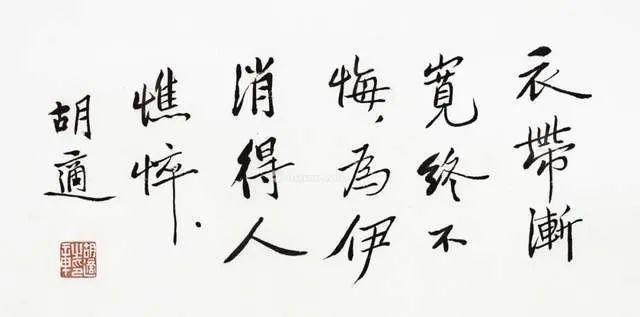 衣帶漸
寬終不
悔，為伊
消得人
憔悴．
胡適
胡適之印